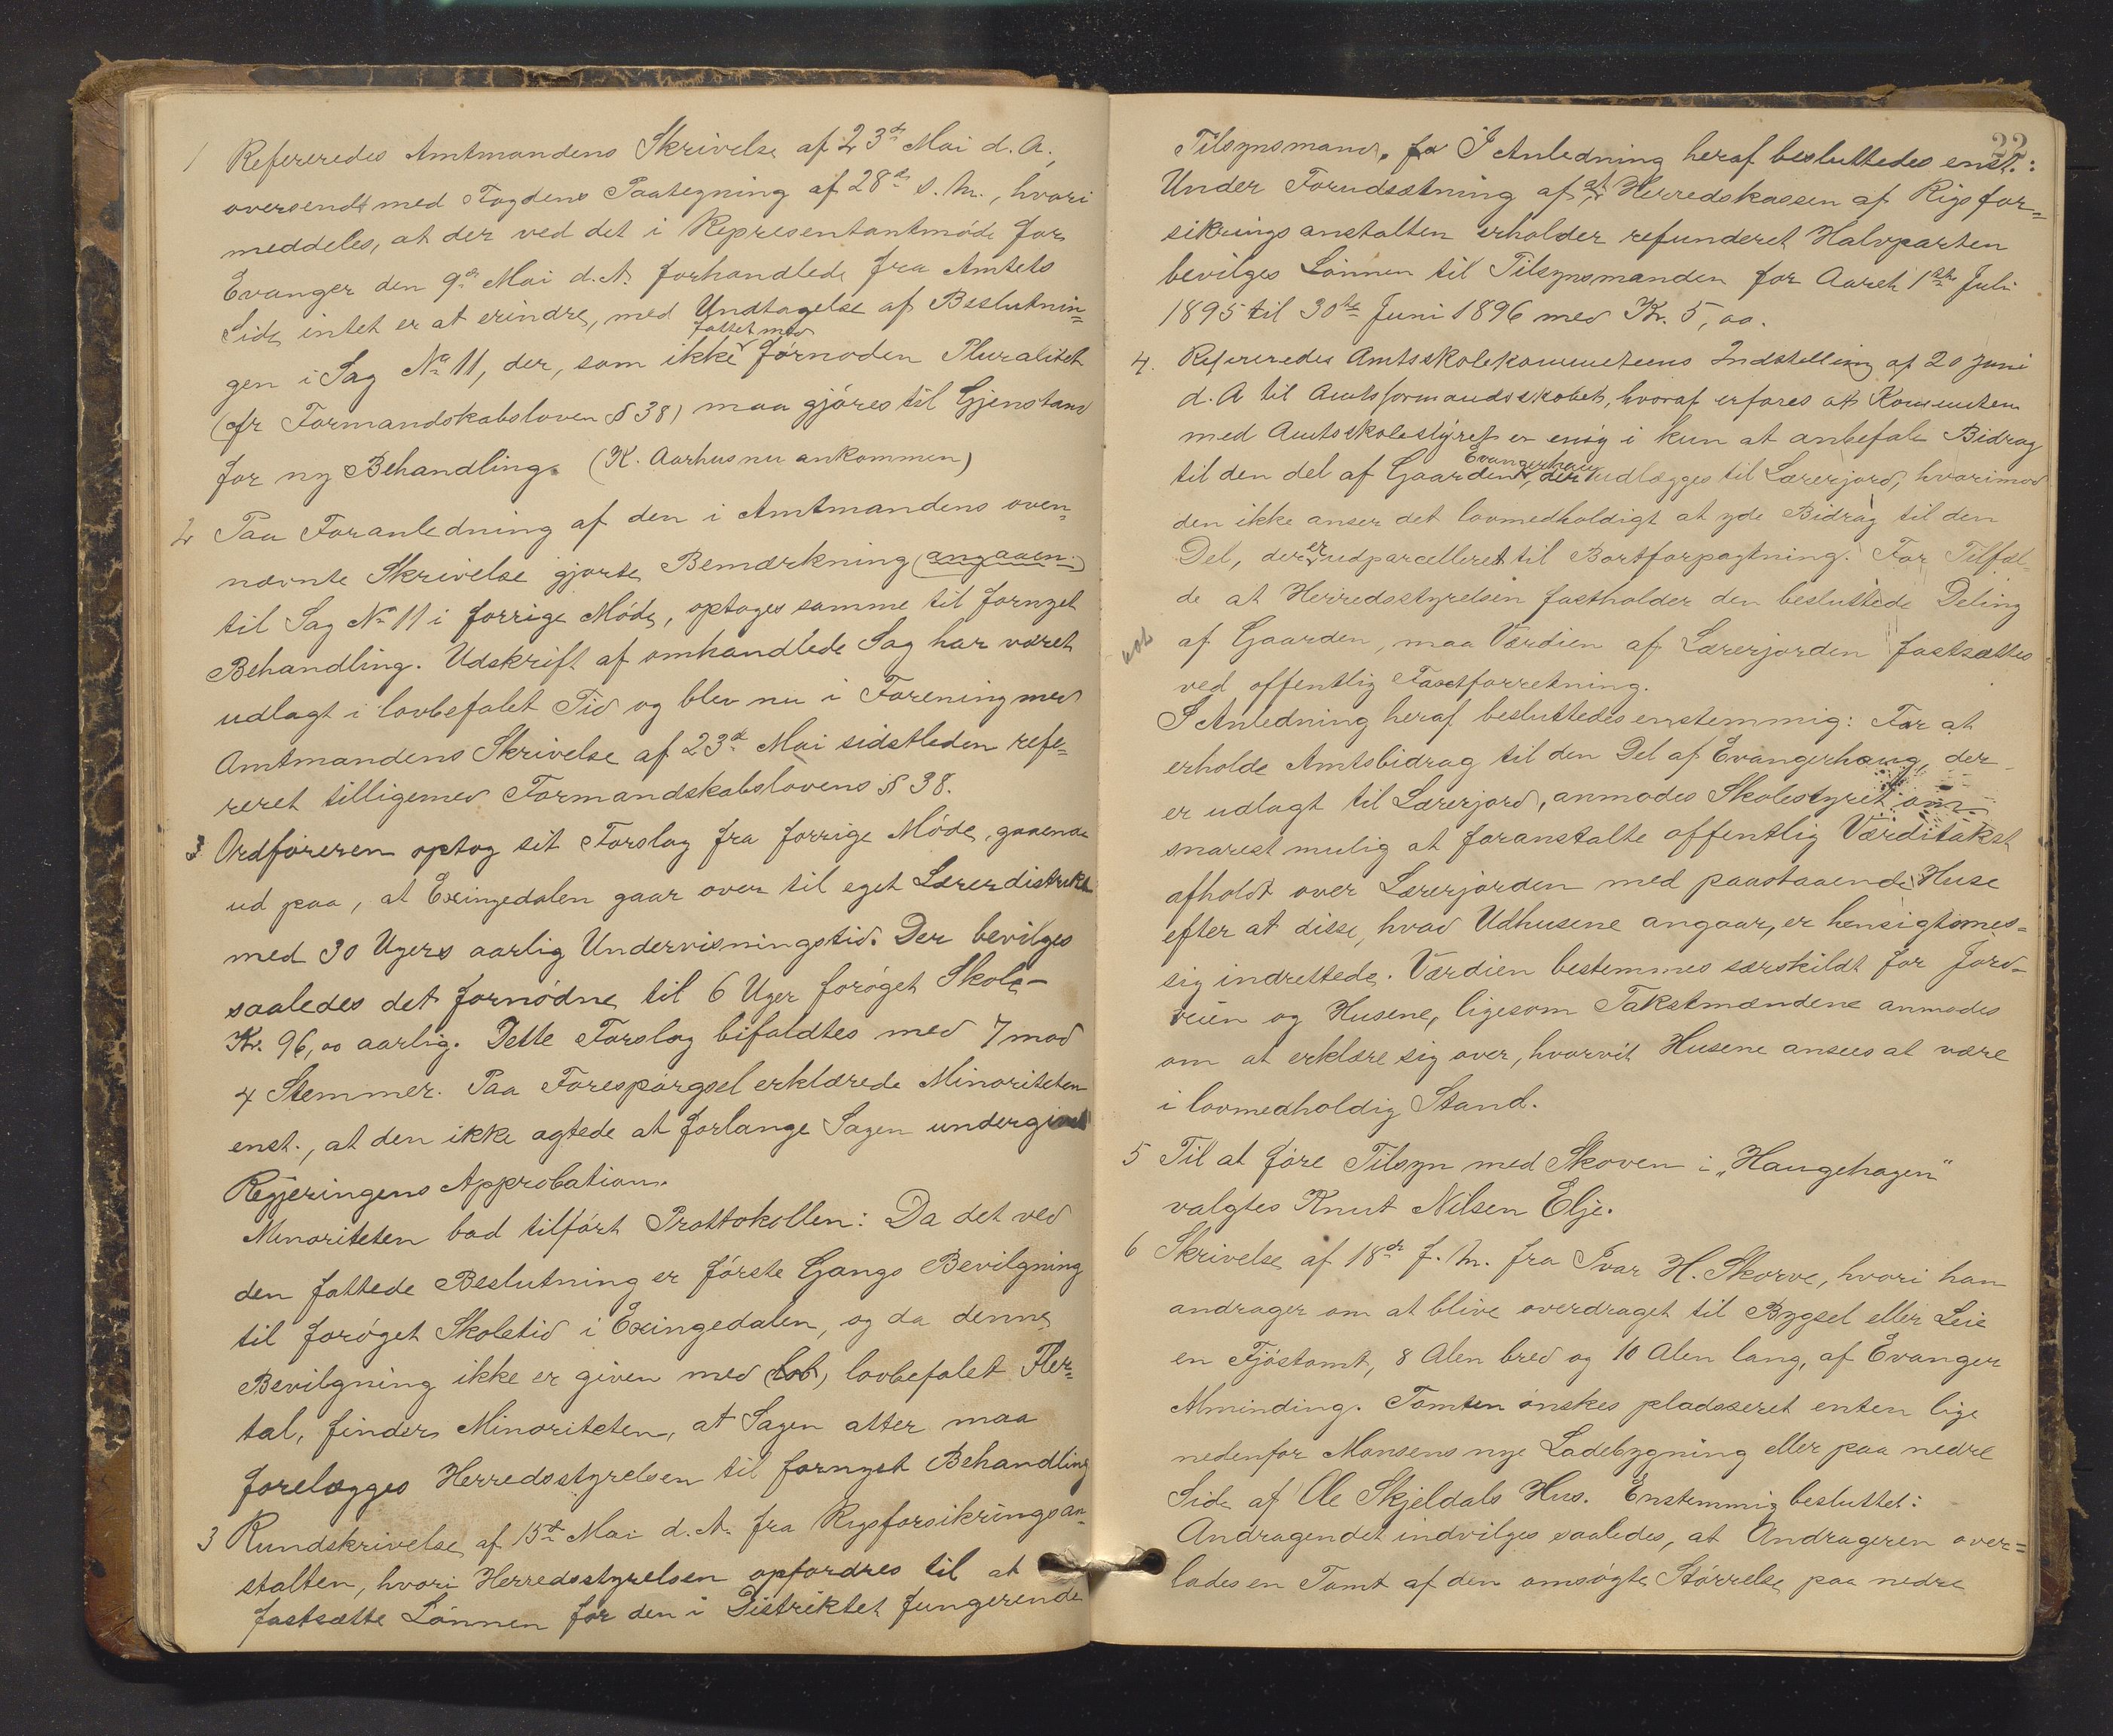 1 Refereredes Amtmandens Skrivelse af 23de Mai d. A.,
oversendt med Fogdens Paategning af 28de s. M., hvori
meddeles, at der ved det i Representantmøde for
Evanger den 9de Mai d. A. forhandlede fra Amtets
Side intet er at erindre, med Undtagelse af Beslutnin=
gen i Sag No 11, der, som ikke fattet med fornøden Pluralitet
(cfr Formandskabsloven § 38) maa gjøres til Gjenstand
for ny Behandling. (K. Aarhus nu ankommen)
2 Paa Foranledning af den i Amtmandens oven=
nævnte Skrivelse gjorte Bemærkning (angaaen)
til Sag No 11 i forrige Møde, optages samme til fornyet
Behandling. Udskrift af omhandlede Sag har været
udlagt i lovbefalet Tid og blev nu i Forening med
Amtmandens Skrivelse af 23de Mai sidstleden refe=
reret tilligemed Formandskabslovens § 38.
3 Ordføreren optog sit Forslag fra forrige Møde, gaaende
ud paa, at Exingedalen gaar over til eget Lærerdistrikt
med 30 Ugers aarlig Undervisningstid. Der bevilges
saaledes det fornødne til 6 Uger forøget Skole-
Kr. 96,00 aarlig. Dette Forslag bifaldtes med 7 mod
4 Stemmer. Paa Forespørgsel erklærede Minoriteten
enst., at den ikke agtede at forlange Sagen undergivet
Regjeringens Approbation.
Minoriteten bad tilført Prottokollen: Da det ved
den fattede Beslutning er første Gangs Bevilgning
til forøget Skoletid i Exingedalen, og da denne
Bevilgning ikke er given med (lob) lovbefalet Fler=
tal, finder Minoriteten, at Sagen atter maa
forelægges Herredsstyrelsen til fornyet Behandling
3 Rundskrivelse af 15de Mai d. A. fra Rigsforsikringsan=
stalten, hvori Herredsstyrelsen opfordres til at
fastsætte Lønnen for den i Distriktet fungerende
22
Tilsynsmand. I Anledning heraf besluttedes enst.:
Under Forudsetning af, at Herredskassen af Rigsfor=
sikringsanstalten erholder refunderet Halvparten
bevilges Lønnen til Tilsynsmanden for Aaret 1ste Juli
1895 til 30te Juni 1896 med Kr. 5,00.
4. Refereredes Amtsskolekommiteens Indstelling af 20 Juni
d. A til Amtsformandsskabet, hvoraf erfares at Komiteen
med Amtsskolestyret er enig i kun at anbefale Bidrag
til den del af Gaarden Evangerhaug, der udlægges til Lærerjord, hvorimod
den ikke anser det lovmedholdigt at yde Bidrag til den
Del, der er udparcelleret til Bortforpagtning. For Tilfæl=
de at Herredsstyrelsen fastholder den besluttede Deling
af Gaarden, maa Værdien af Lærerjorden fastsættes
ved offentlig Taxtforretning.
I Anledning heraf besluttedes enstemmig: For at
erholde Amtsbidrag til den Del af Evangerhaug, der
er udlagt til Lærerjord, anmodes Skolestyret om
snarest mulig at foranstalte offentlig Værditakst
afholdt over Lærerjorden med paastaaende Huse
efter at disse, hvad Udhusene angaar, er hensigtsmes=
sig indrettede. Værdien bestemmes særskildt for Jord-
veien og Husene, ligesom Takstmændene anmodes
om at erklære sig over, hvorvit Husene ansees at være
i lovmedholdig Stand.
5 Til at føre Tilsyn med Skoven i „Haugehagen“
valgtes Knut Nilsen Elje.
6 Skrivelse af 18de f. M. fra Ivar H. Skorve, hvori han
andrager om at blive overdraget til Bygsel eller Leie
en Fjøstomt, 8 Alen bred og 10 Alen lang, af Evanger
Alminding. Tomten ønskes pladsseret enten lige
nedenfor Monsens nye Ladebygning eller paa nedre
Side af Ole Skjeldals Hus. Enstemmig besluttet:
Andragendet indvilges saaledes, at Andrageren over=
lades en Tomt af den omsøgte Størrelse paa nedre